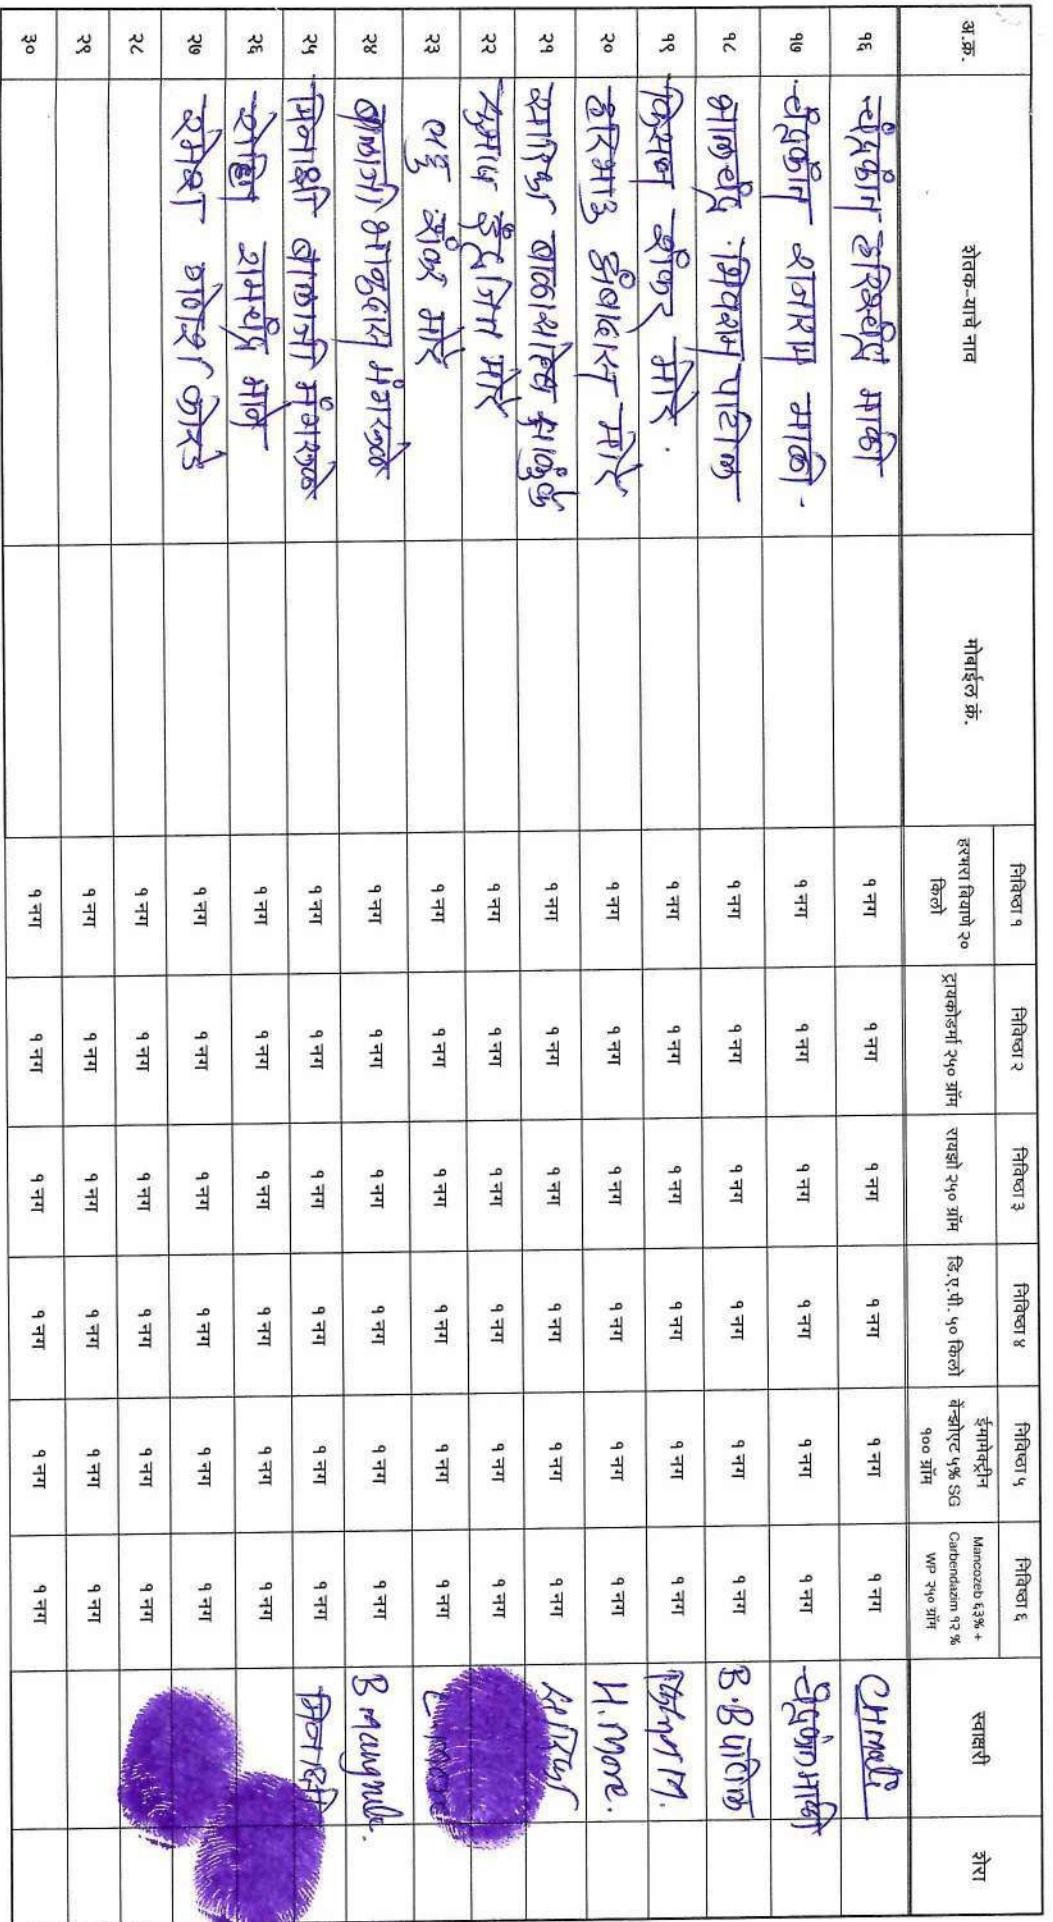 अ.क्र. शेतक-याचे नाव मोबाईल क्रं. निविष्ठा १ निविष्ठा २ निविष्ठा ३ निविष्ठा ४ निविष्ठा ५ निविष्ठा ६ स्वाक्षरी शेरा
हरभरा बियाणे २० किलो ट्रायकोडर्मा २५० ग्रॅम रायझो २५० ग्रॅम डि.ए.पी. ५० किलो ईमामेक्ट्रीन बेन्झोएट ५% SG १०० ग्रॅम Mancozeb ६३% + Carbendazim १२ % WP २५० ग्रॅम
१६ चंद्रकांत हरिश्चंद्र माळी १ नग १ नग १ नग १ नग १ नग १ नग CH mali
१७ चंद्रकांत राजाराम माळी १ नग १ नग १ नग १ नग १ नग १ नग चंद्रकांत माळी
१८ भालचंद्र पाटिल १ नग १ नग १ नग १ नग १ नग १ नग B.B पाटिल
१९ किसन शंकर मोरे १ नग १ नग १ नग १ नग १ नग १ नग
२० हरिभाऊ मोरे १ नग १ नग १ नग १ नग १ नग १ नग H. More.
२१ बाळासाहेब साळुंके १ नग १ नग १ नग १ नग १ नग १ नग
२२ सुभाष इंद्रजित मोरे १ नग १ नग १ नग १ नग १ नग १ नग
२३ लहु शंकर मोरे १ नग १ नग १ नग १ नग १ नग १ नग
२४ बालाजी १ नग १ नग १ नग १ नग १ नग १ नग
२५ मिनाक्षी बालाजी १ नग १ नग १ नग १ नग १ नग १ नग मिनाक्षी
२६ रामचंद्र माने १ नग १ नग १ नग १ नग १ नग १ नग
२७ १ नग १ नग १ नग १ नग १ नग १ नग
२८ १ नग १ नग १ नग १ नग १ नग १ नग
२९ १ नग १ नग १ नग १ नग १ नग १ नग
३० १ नग १ नग १ नग १ नग १ नग १ नग